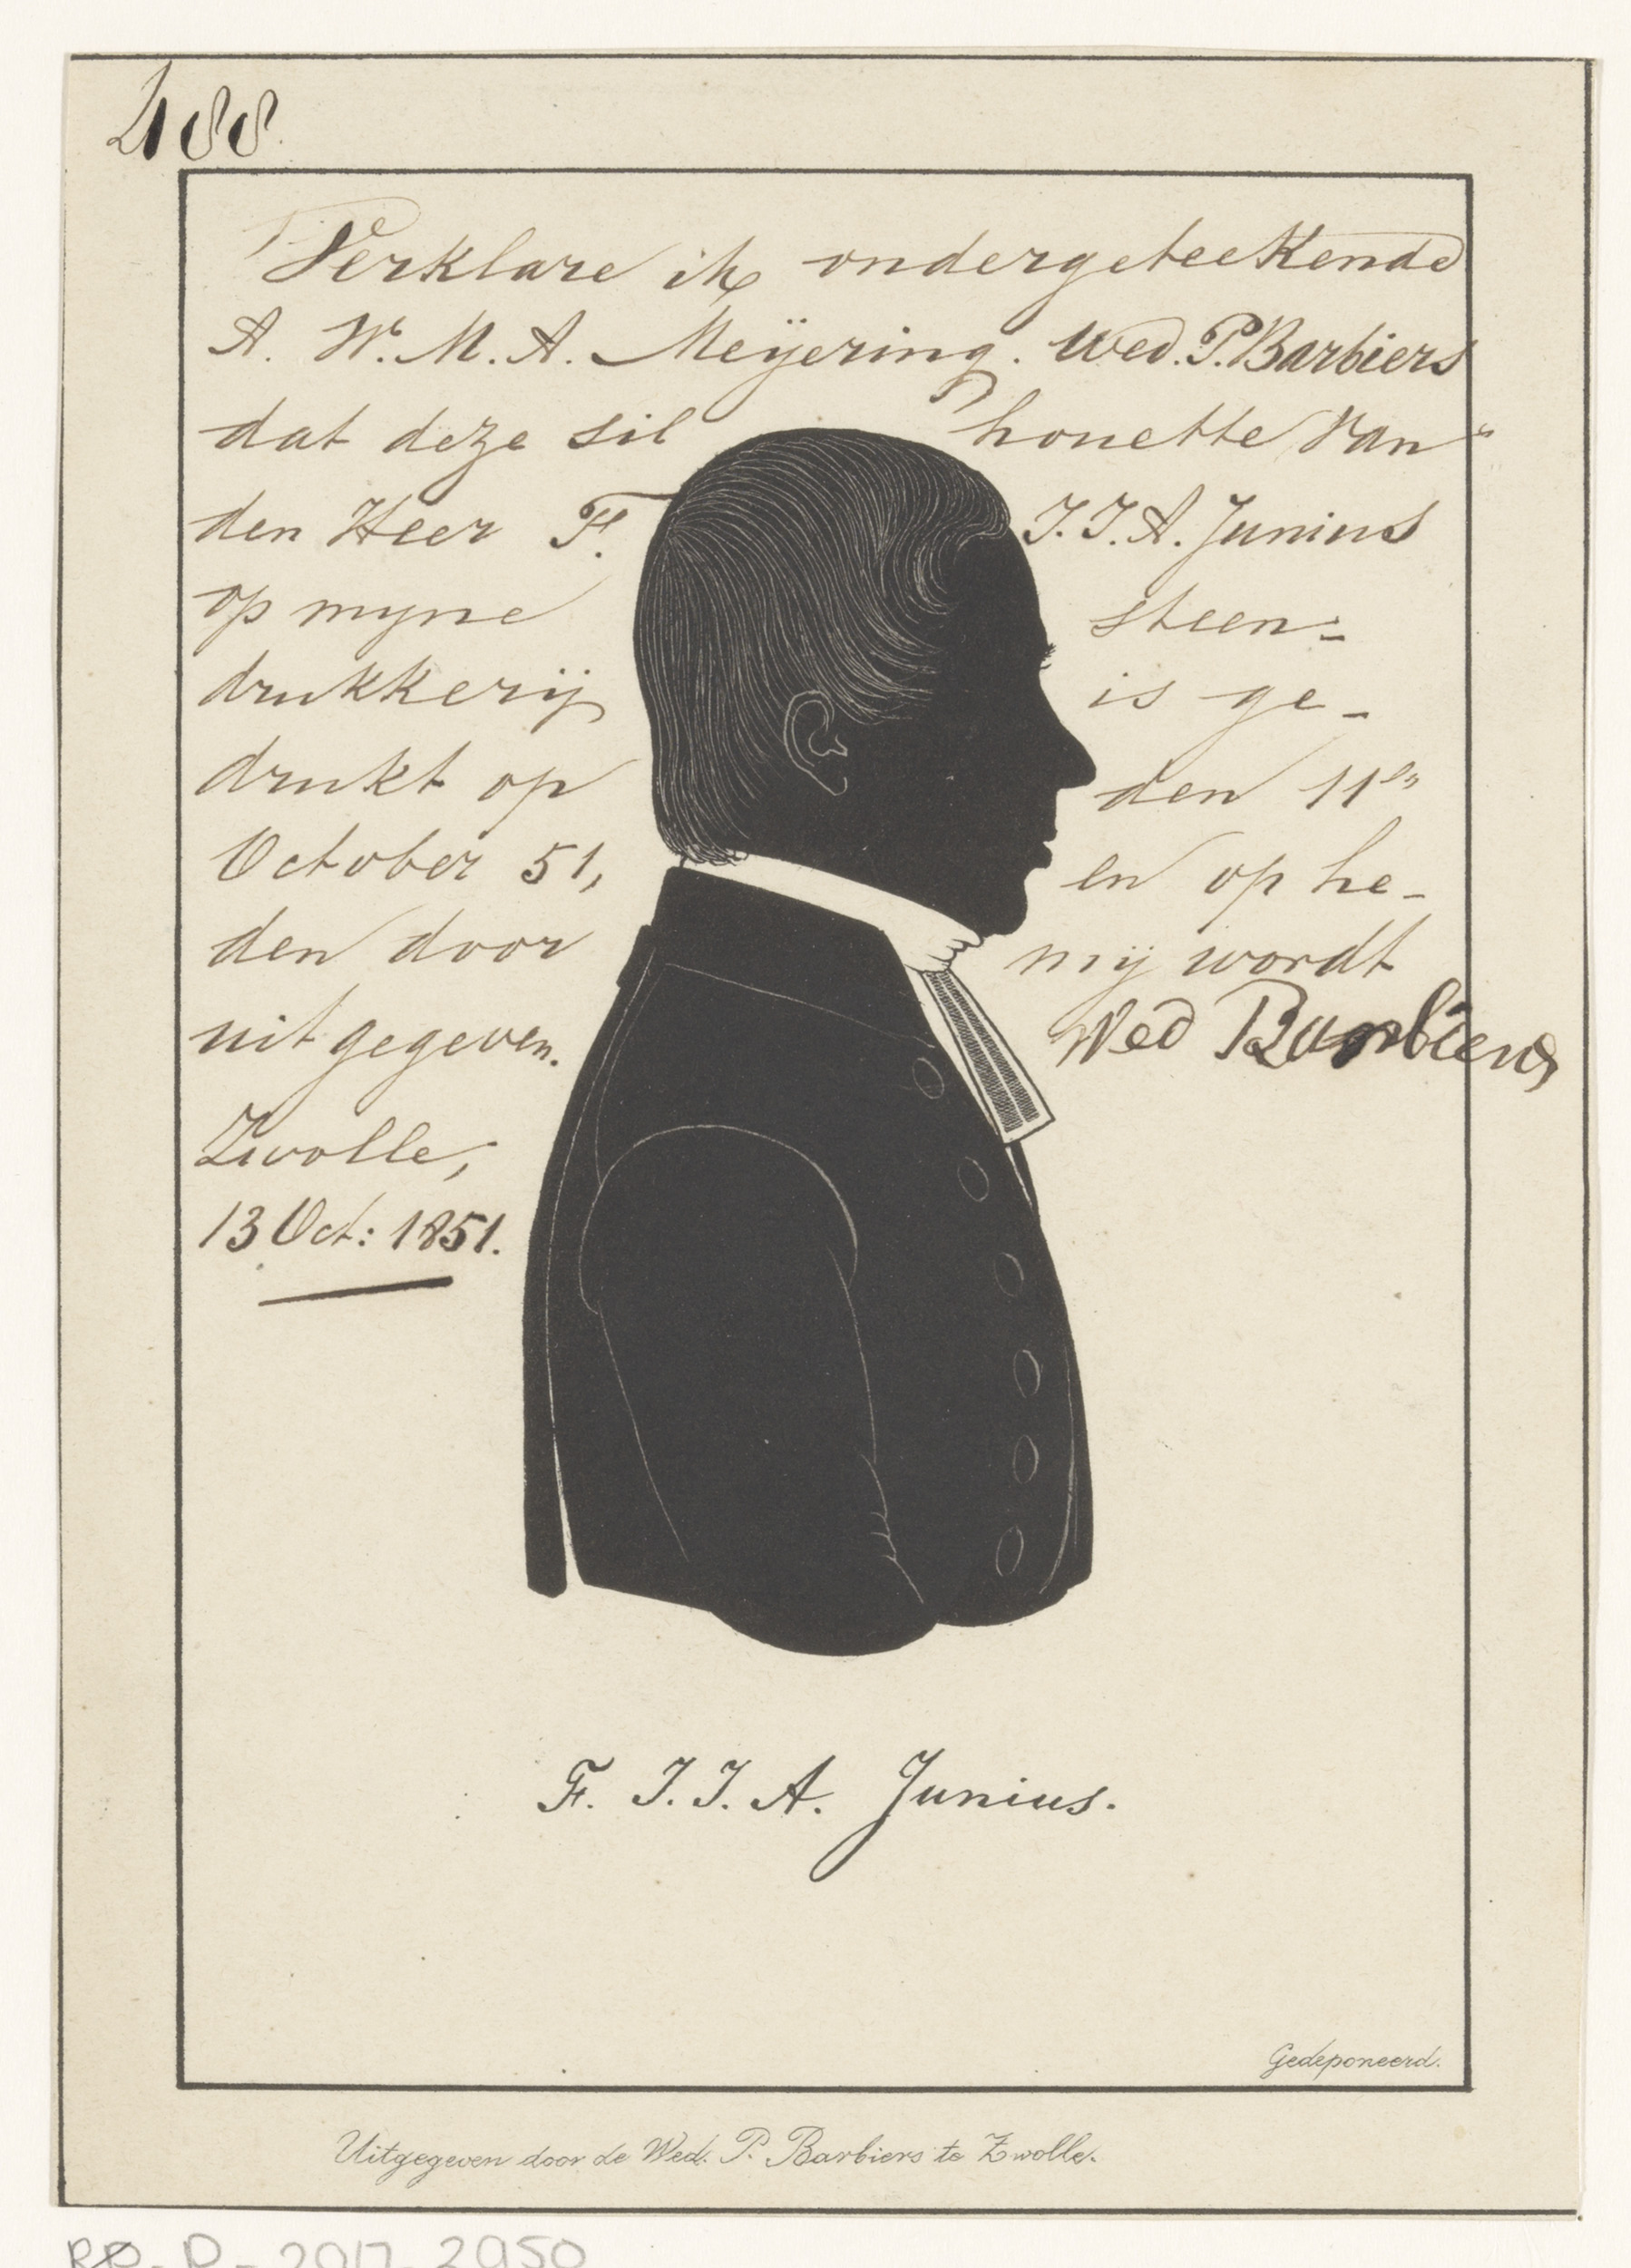 488.
Verklare ik ondergeteekende
A. W. M. A. Meÿering. Wed. P. Barbiers
dat deze sil houette van
den Heer F. J. J. A. Junius
op myne steen=
drukkerij is ge-
drukt op den 11en
October 51, en op he-
den door mij wordt
uitgegeven. Wed Barbiers
Zwolle,
13 Oct: 1851.
F. J. J. A. Junius.
Gedeponeerd.
Uitgegeven door de Wed. P. Barbiers te Zwolle.
RP-P-2017-2950